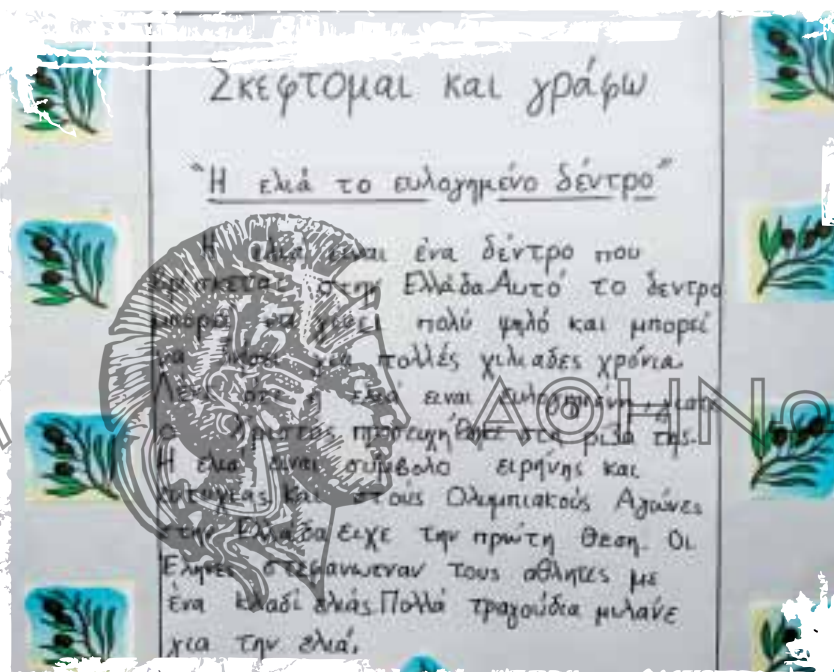 Σκεφτομαι και γράφω
"Η ελιά το ευλογημένο δέντρο"
Η ελιά ειναι ένα δέντρο που
βρίσκεται στην Ελλάδα. Αυτό το δεντρο
μπορεί να γίνει πολύ ψηλό και μπορεί
να ζήσει για πολλές χιλιαδες χρόνια.
Λένε οτι η ελιά ειναι ευλογημένη, γιατι
ο Χριστός προσευχήθηκε στη ρίζα της.
Η ελιά ειναι σύμβολο ειρήνης και
ευτυχίας. Και στους Ολυμπιακούς Αγώνες
στην Ελλάδα ειχε την πρώτη θεση. Οι
Έληνες στεφανωναν τους αθλητες με
ένα κλαδί ελιάς. Πολλά τραγούδια μιλάνε
για την ελιά.